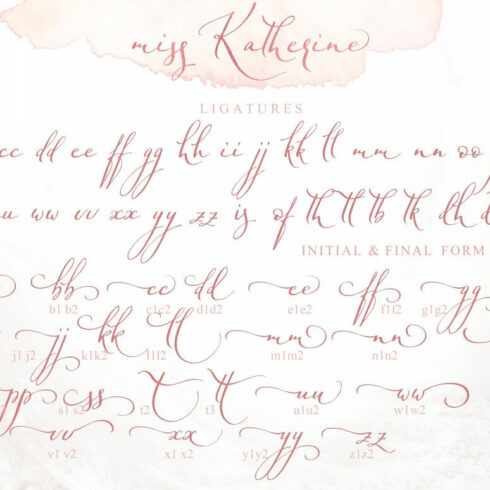 miss Katherine
LIGATURES
cc dd ee ff gg hh ii jj kk ll mm nn oo
u ww vv xx yy zz is of th tl tb tk dh d
INITIAL & FINAL FORM
bb cc dd ee ff gg
b1b2 c1c2 d1d2 e1e2 f1f2 g1g2
jj kk ll mm nn
j1j2 k1k2 l1l2 m1m2 n1n2
pp ss t tt uu ww
s1s2 t2 t3 u1u2 w1w2
vv xx yy zz
v1v2 x1x2 y1y2 z1z2